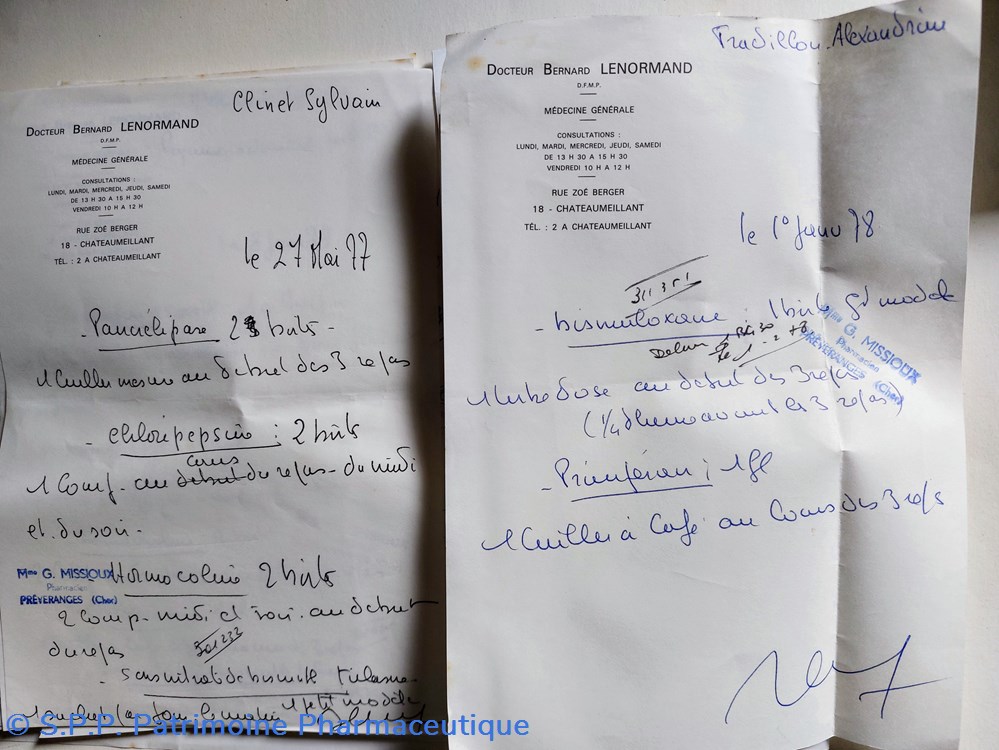 Clinet Sylvain
DOCTEUR BERNARD LENORMAND
D.F.M.P.
MÉDECINE GÉNÉRALE
CONSULTATIONS :
LUNDI, MARDI, MERCREDI, JEUDI, SAMEDI
DE 13 H 30 A 15 H 30
VENDREDI 10 H A 12 H
RUE ZOÉ BERGER
18 - CHATEAUMEILLANT
TÉL. : 2 A CHATEAUMEILLANT
le 27 Mai 77
- Pancrélipase 2 btes -
1 Cuiller mesure au debut des 3 repas
- Chlorepepsine : 2 btes
cours
1 Comp. au debut du repas du midi
et du soir -
Mme G. MISSIOUX
Pharmacien
PRÉVERANGES (Cher)
Hormocoline 2 btes
2 Comp. midi et soir au debut
du repas
301232
- Sous nitrate de bismuth
1 petit modèle
1 tous les matin
Tradillon Alexandrine
DOCTEUR BERNARD LENORMAND
D.F.M.P.
MÉDECINE GÉNÉRALE
CONSULTATIONS :
LUNDI, MARDI, MERCREDI, JEUDI, SAMEDI
DE 13 H 30 A 15 H 30
VENDREDI 10 H A 12 H
RUE ZOÉ BERGER
18 - CHATEAUMEILLANT
TÉL. : 2 A CHATEAUMEILLANT
le 1° Janv 78
311351
- bismuloxane : 1 bte Gd modele
Mme G. MISSIOUX
Pharmacien
PRÉVERANGES (Cher)
1 unidose au debut des 3 repas
(1/4 d'heure avant les 3 repas)
- Primpéran : 1 fl
1 Cuiller à Café au Cours des 3 repas
© S.P.P. Patrimoine Pharmaceutique